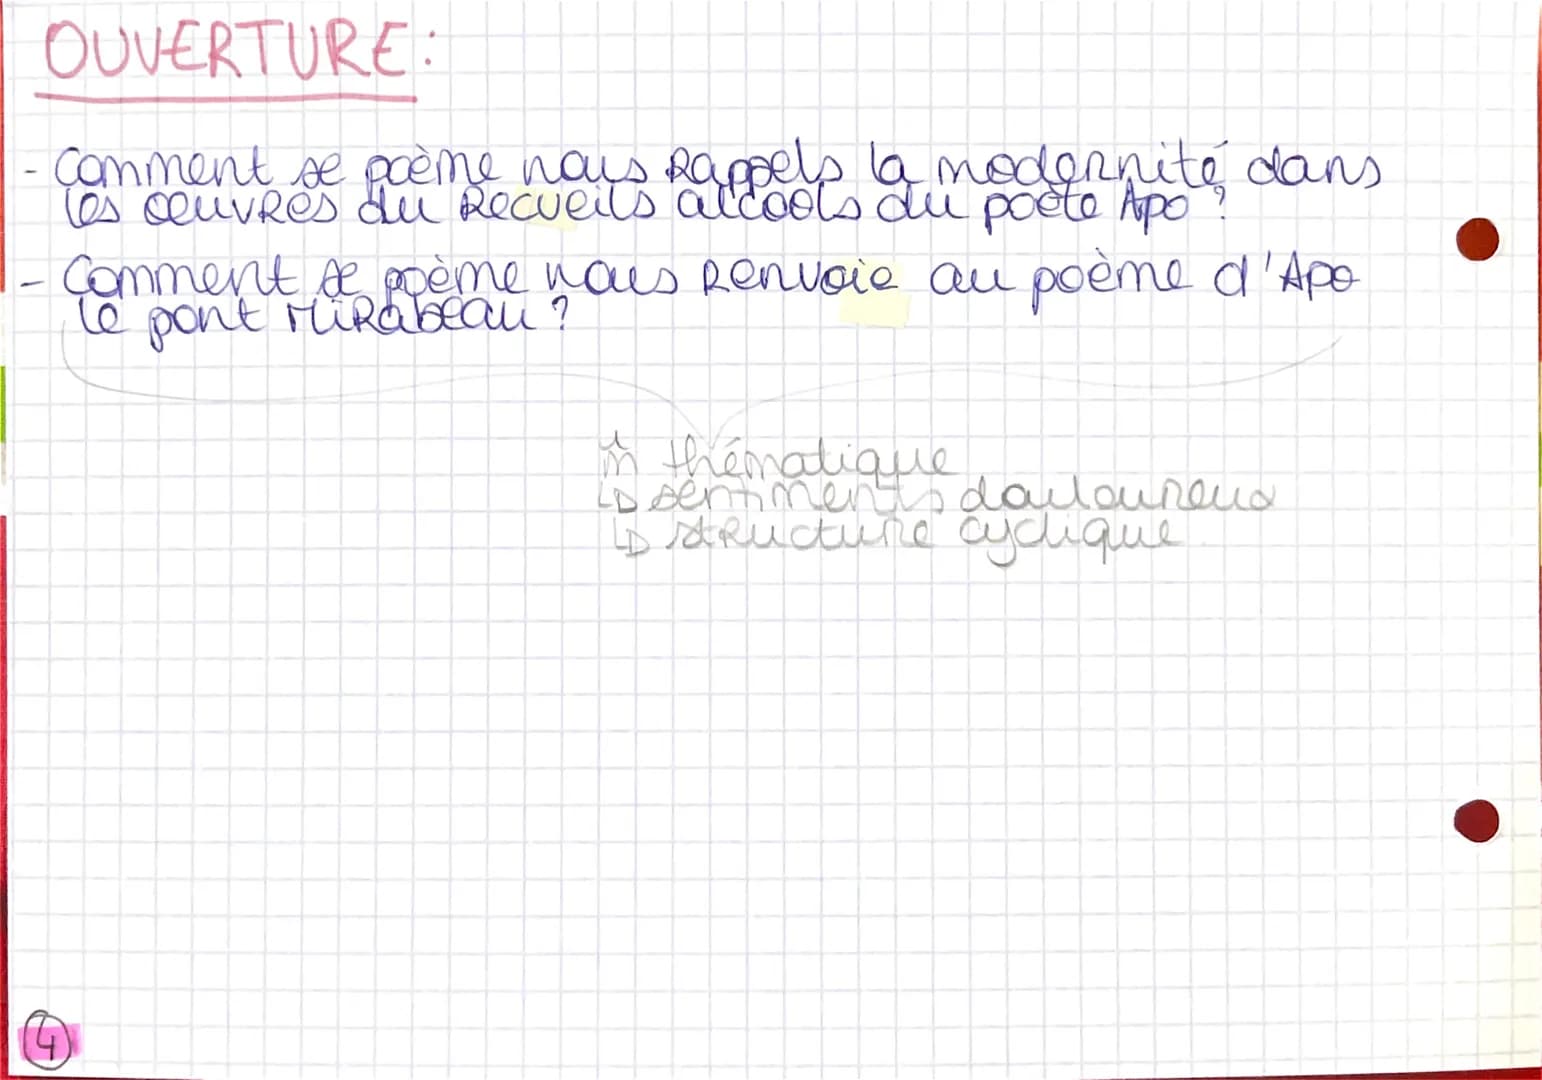 OUVERTURE:
- Comment se poème nous Rappels la modernité dans
les œuvres du Recueils alcools du poète Apo ?
- Comment se poème nous Renvoie au poème d'Apo
le pont Mirabeau ?
m̂ thématique
↳ sentiments douloureux
↳ structure cyclique
4